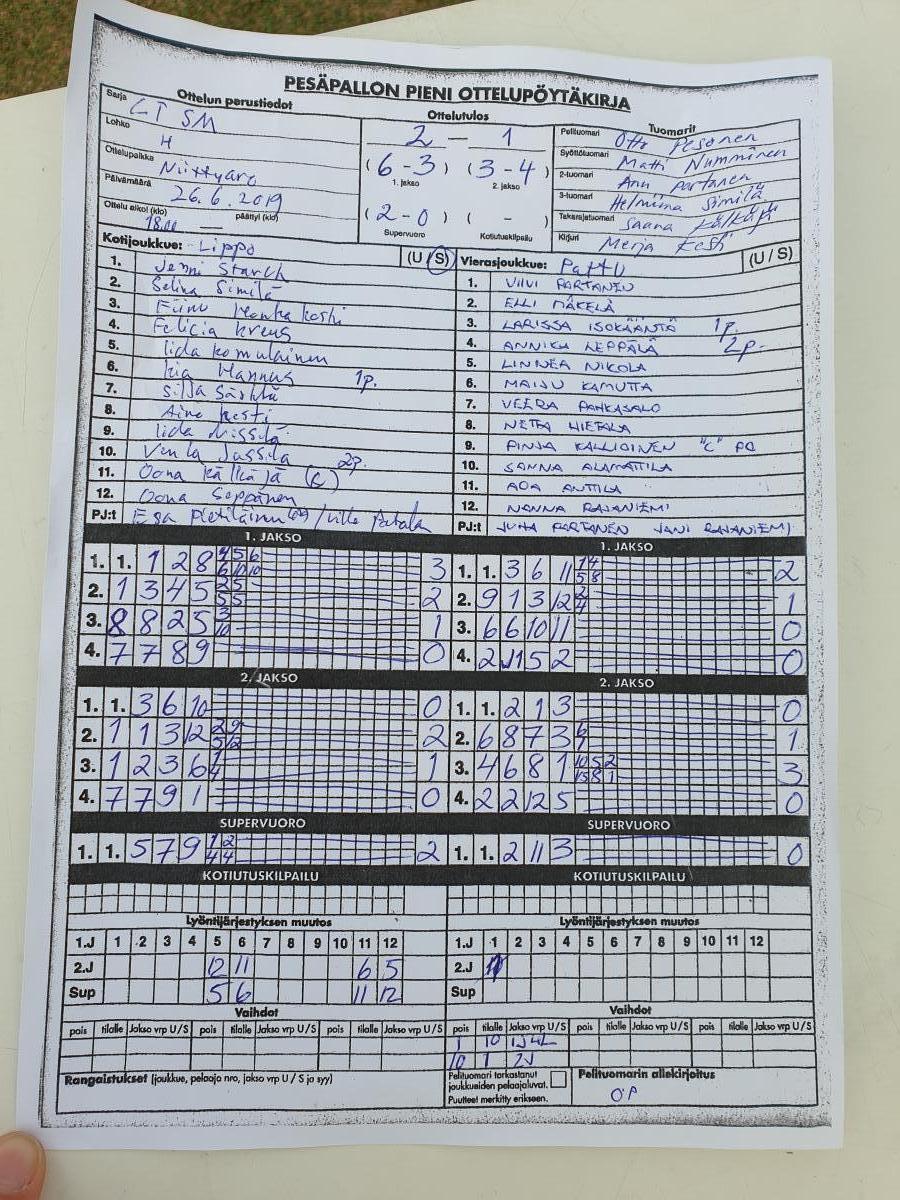 PESÄPALLON PIENI OTTELUPÖYTÄKIRJA
Ottelun perustiedot
Sarja LT SM
Lohko H
Ottelupaikka Niittyaro
Päivämäärä 26.6.2019
Ottelu alkoi (klo) 18.00 päättyi (klo) —
Ottelutulos
2 - 1
(6-3) (3-4)
1. jakso 2. jakso
(2-0) ( - )
Supervuoro Kotiutuskilpailu
Tuomarit
Pelituomari Otto Pesonen
Syöttötuomari Matti Numminen
2-tuomari Anu Partanen
3-tuomari Helmiina Similä
Takarajatuomari Saana Kälkäjä
Kirjuri Merja Kesti
Kotijoukkue: Lippo (U / S)
1. Jenni Starck
2. Selina Similä
3. Honkakoski
4. Felicia Kreus
5. Iida Komulainen
6. Kia Hannus 1p.
7. Silja Särkkä
8. Aino Kesti
9. Iida
10. Venla Jussila 2p.
11. Oona Kälkäjä (C)
12. Oona Seppänen
PJ:t Esa Pietiläinen / Ville Patala
Vierasjoukkue: PattU (U / S)
1. VIIVI PARTANEN
2. ELLI MÄKELÄ
3. LARISSA ISOKÄÄNTÄ 1p.
4. ANNIKA LEPPÄLÄ 2p.
5. LINNEA NIKOLA
6. MAIJU KAMUTTA
7. VEERA PAHKASALO
8. NETTA HIETALA
9. PINJA KALLIOINEN "C" PO
10. SANNA ALAMATTILA
11. ADA ANTTILA
12. NANNA RAJANIEMI
PJ:t JUHA PARTANEN JANI RAJANIEMI
1. JAKSO
1. 1. 1 2 8 4 5 6 3
6 10 10
2. 1 3 4 5 2 5 2
5 5
3. 8 8 2 5 3 1
10
4. 7 7 8 9 0
1. JAKSO
1. 1. 3 6 11 1 4 2
5 8
2. 9 1 3 12 2 1
4
3. 6 6 10 11 0
4. 2 11 5 2 0
2. JAKSO
1. 1. 3 6 10 0
2. 1 1 3 12 2 9 2
5 12
3. 1 2 3 6 1 1
4
4. 7 7 9 1 0
2. JAKSO
1. 1. 2 1 3 0
2. 6 8 7 3 6 1
1
3. 4 6 8 1 10 5 2 3
1 5 8 1
4. 2 2 12 5 0
SUPERVUORO
1. 1. 5 7 9 1 2 2
4 4
SUPERVUORO
1. 1. 2 11 3 0
KOTIUTUSKILPAILU
KOTIUTUSKILPAILU
Lyöntijärjestyksen muutos
1.J 1 2 3 4 5 6 7 8 9 10 11 12
2.J 12 11 6 5
Sup 5 6 11 12
Lyöntijärjestyksen muutos
1.J 1 2 3 4 5 6 7 8 9 10 11 12
2.J
Sup
Vaihdot
pois tilalle Jakso vrp U / S pois tilalle Jakso vrp U / S pois tilalle Jakso vrp U / S
Vaihdot
pois tilalle Jakso vrp U / S pois tilalle Jakso vrp U / S pois tilalle Jakso vrp U / S
1 10 1J4L
10 1 2J
Rangaistukset (joukkue, pelaaja nro, jakso vrp U / S ja syy)
Pelituomari tarkastanut
joukkueiden pelaajaluvat.
Puutteet merkitty erikseen.
Pelituomarin allekirjoitus
OP